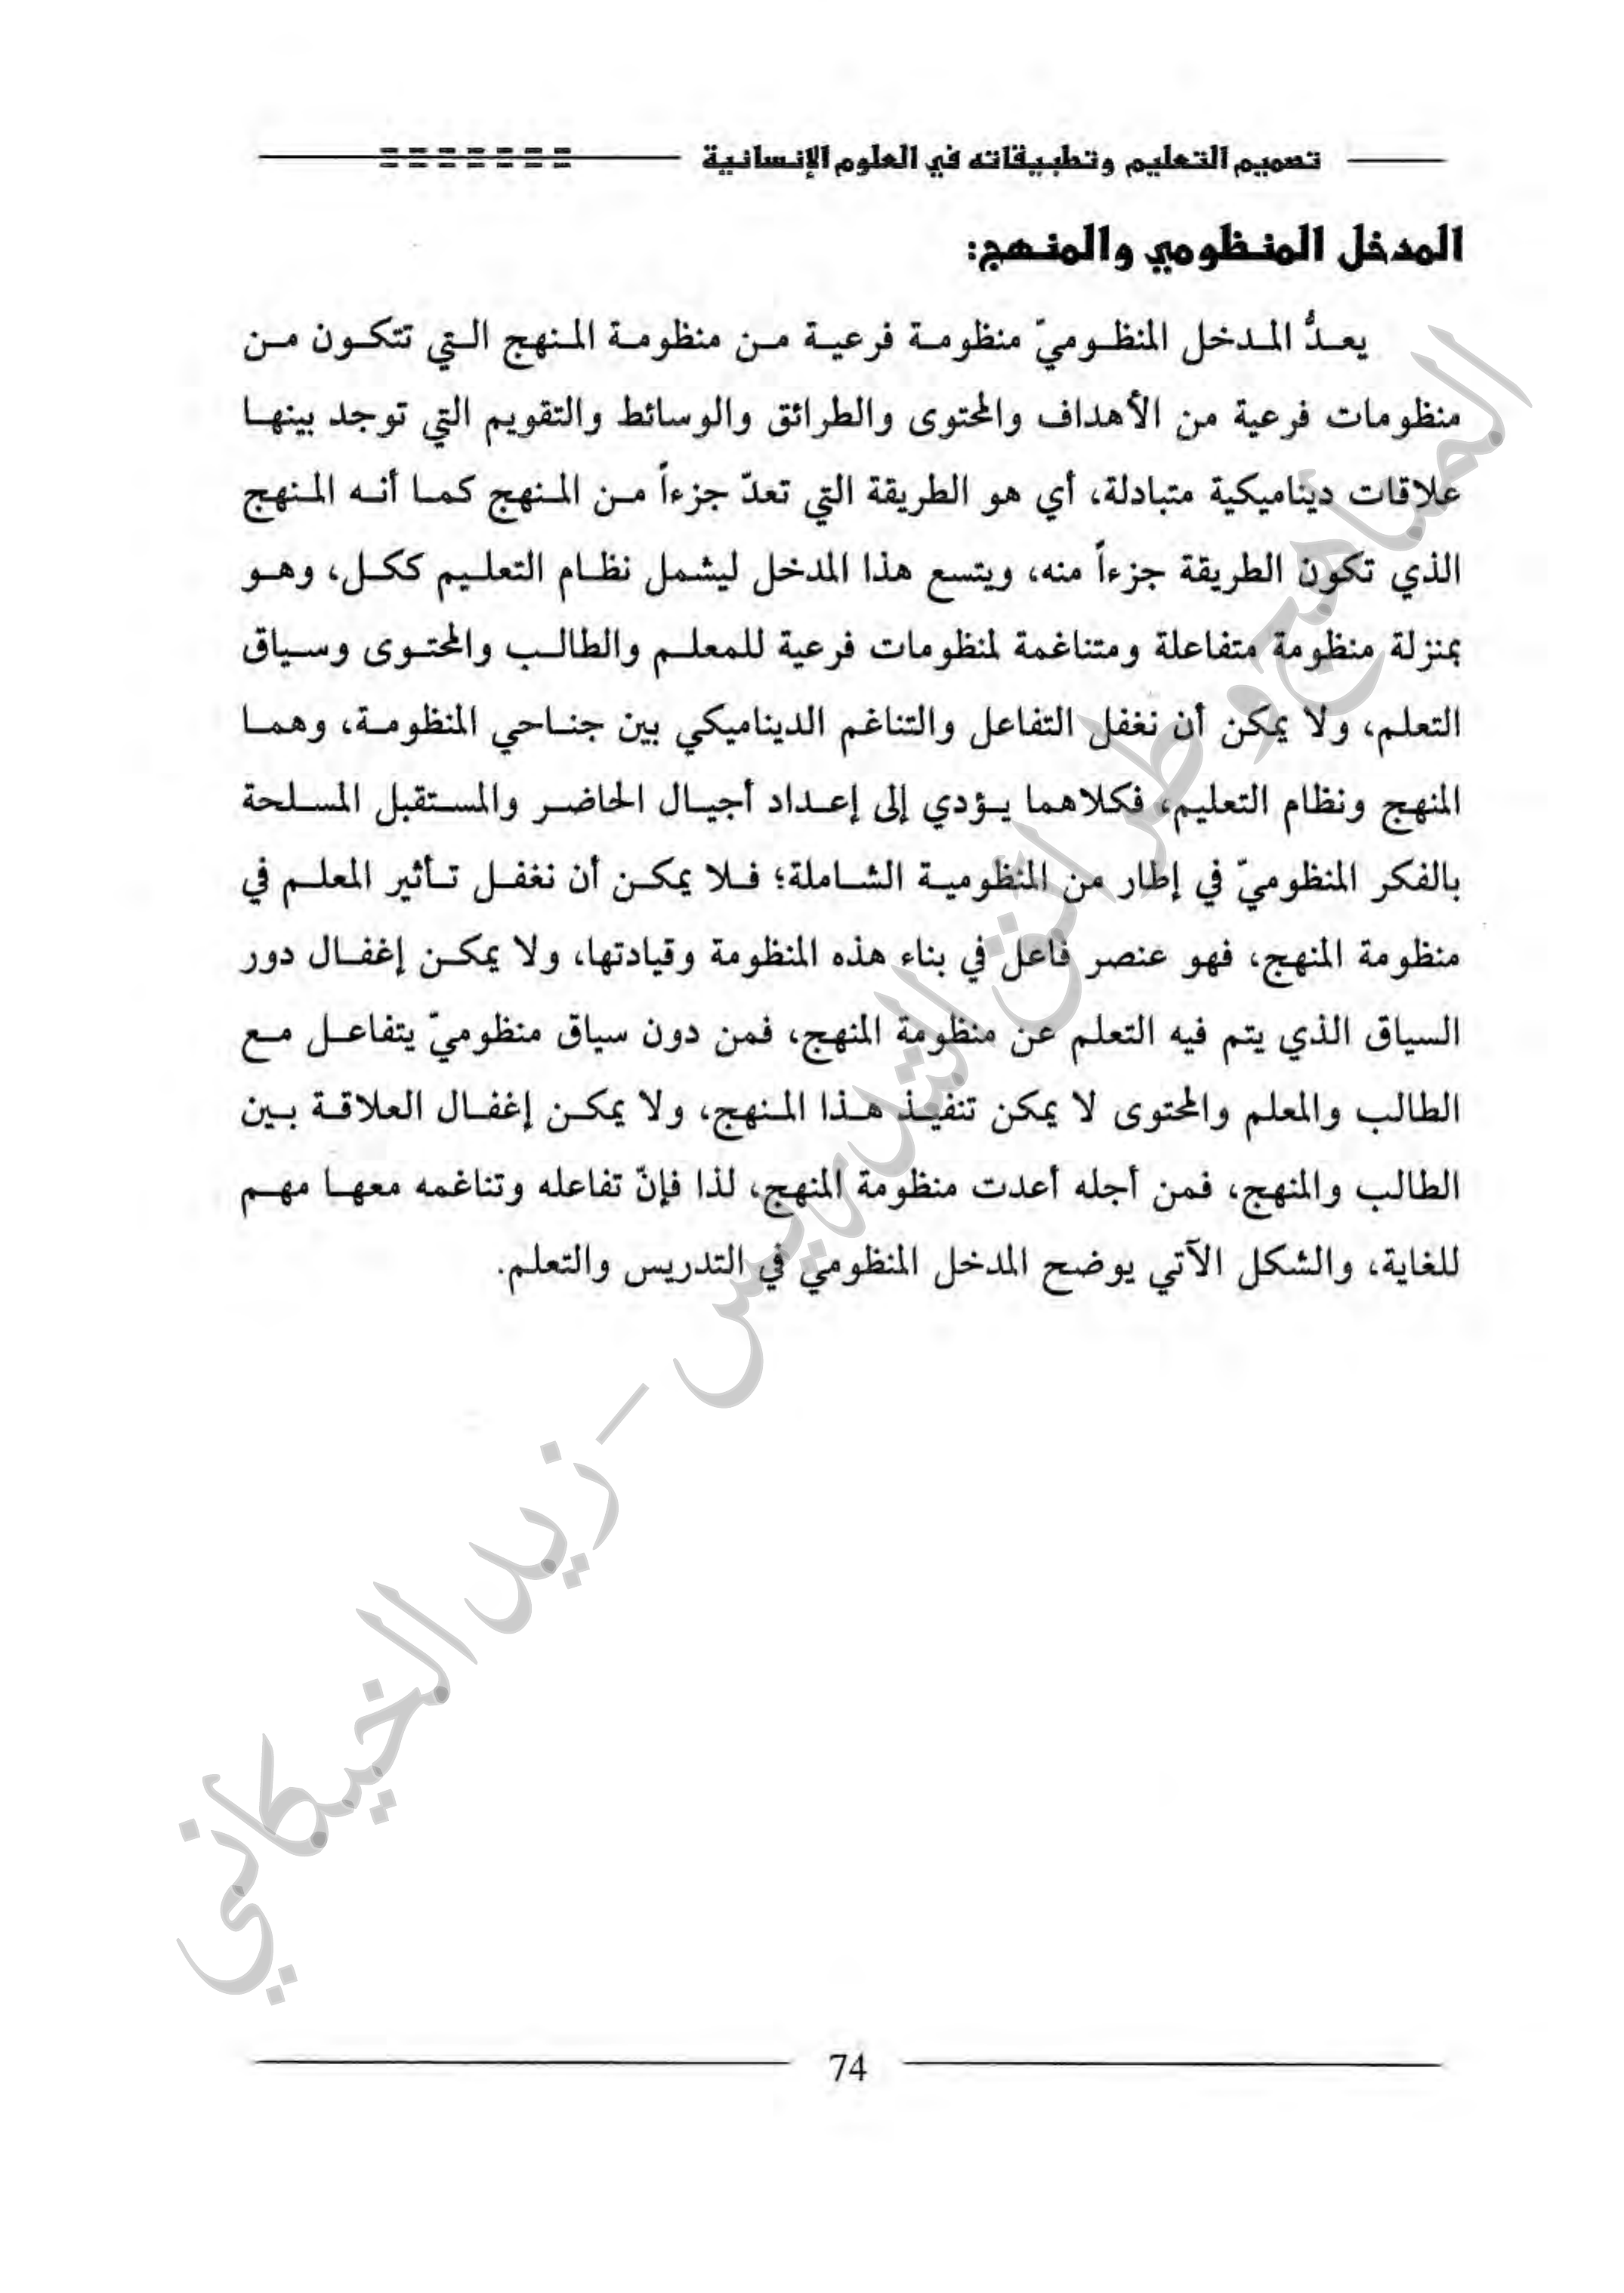 تصميم التعليم وتطبيقاته في العلوم الإنسانية
المدخل المنظومي والمنهج:
يعدُّ المدخل المنظوميّ منظومة فرعية من منظومة المنهج التي تتكون من
منظومات فرعية من الأهداف والمحتوى والطرائق والوسائط والتقويم التي توجد بينها
علاقات ديناميكية متبادلة، أي هو الطريقة التي تعدّ جزءاً من المنهج كما أنه المنهج
الذي تكون الطريقة جزءاً منه، ويتسع هذا المدخل ليشمل نظام التعليم ككل، وهو
بمنزلة منظومة متفاعلة ومتناغمة لمنظومات فرعية للمعلم والطالب والمحتوى وسياق
التعلم، ولا يمكن أن نغفل التفاعل والتناغم الديناميكي بين جناحي المنظومة، وهما
المنهج ونظام التعليم، فكلاهما يؤدي إلى إعداد أجيال الحاضر والمستقبل المسلحة
بالفكر المنظوميّ في إطار من المنظومية الشاملة؛ فلا يمكن أن نغفل تأثير المعلم في
منظومة المنهج، فهو عنصر فاعل في بناء هذه المنظومة وقيادتها، ولا يمكن إغفال دور
السياق الذي يتم فيه التعلم عن منظومة المنهج، فمن دون سياق منظوميّ يتفاعل مع
الطالب والمعلم والمحتوى لا يمكن تنفيذ هذا المنهج، ولا يمكن إغفال العلاقة بين
الطالب والمنهج، فمن أجله أعدت منظومة المنهج، لذا فإنّ تفاعله وتناغمه معها مهم
للغاية، والشكل الآتي يوضح المدخل المنظومي في التدريس والتعلم.
المناهج وطرائق التدريس - زيد الخيكاني
74